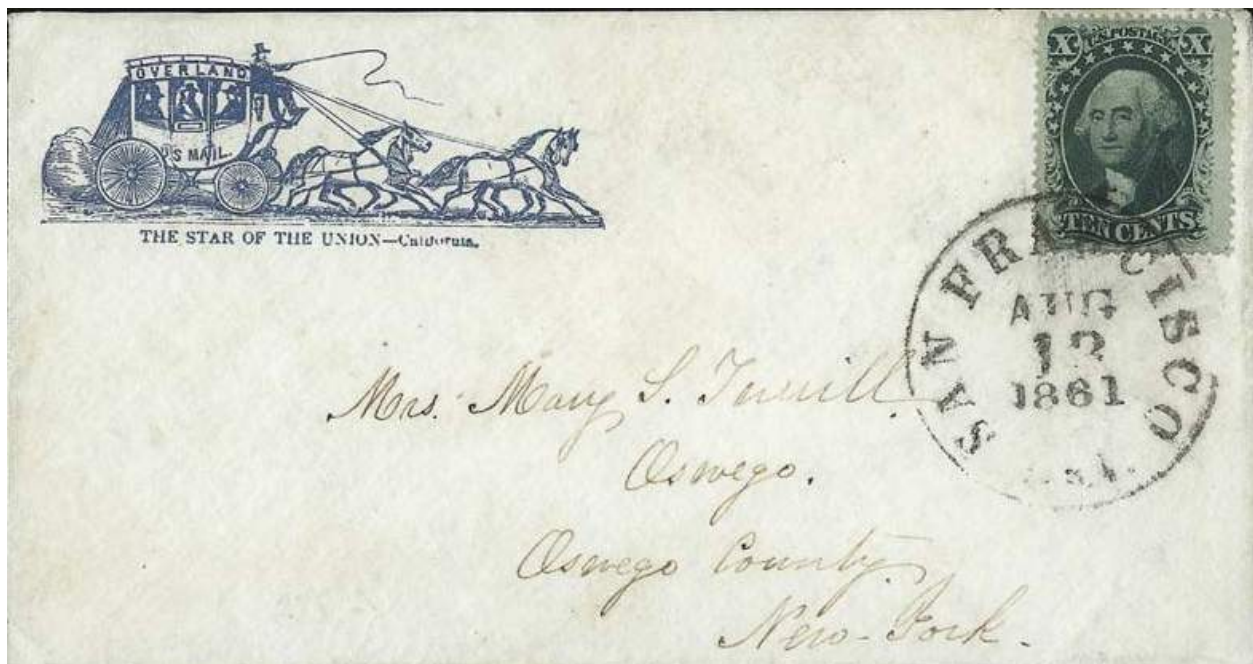 OVERLAND
U S MAIL
THE STAR OF THE UNION—California.
X U.S. POSTAGE X
TEN CENTS
SAN FRANCISCO
AUG
13
1861
CAL.
Mrs. Mary S.
Oswego.
Oswego County
New-York.